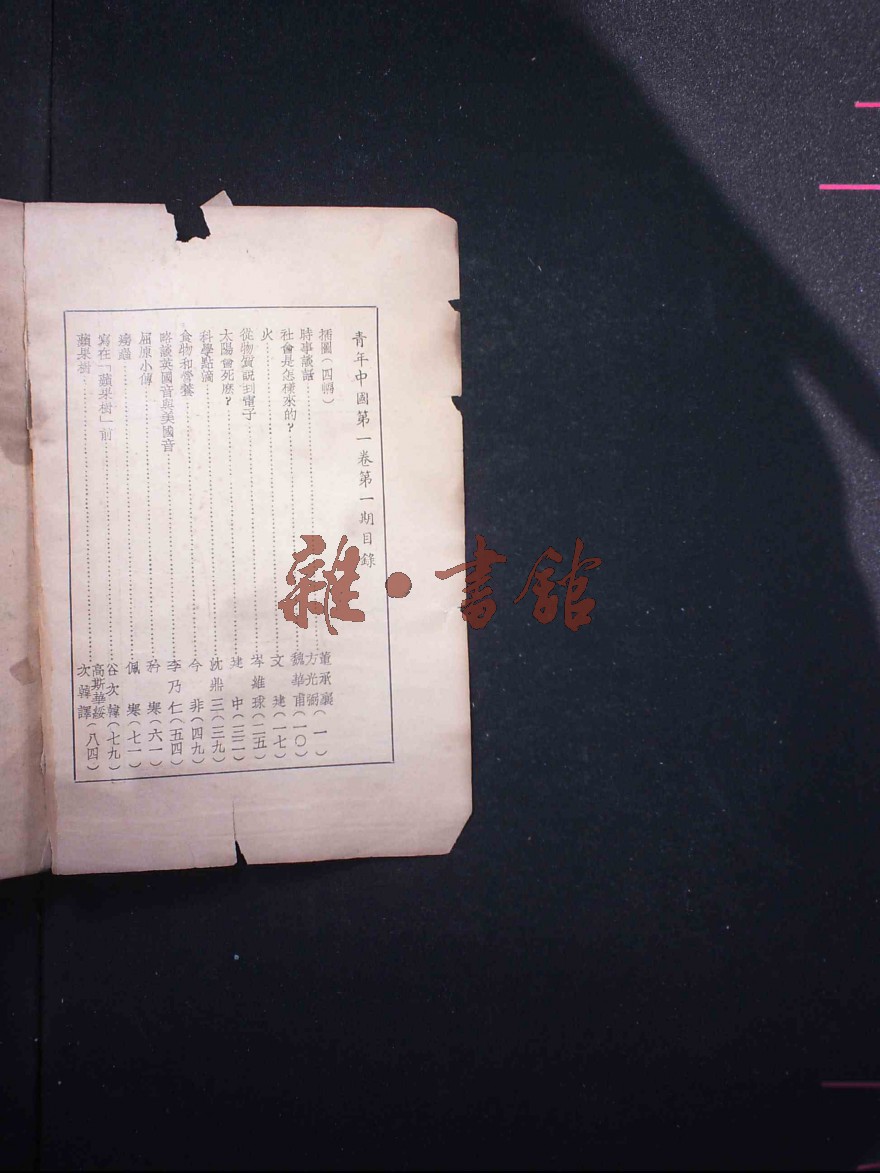 青年中國第一卷第一期目錄
插圖（四幅）
時事談話……董承襄 方光弼（一）
社會是怎樣來的？……魏華甫（一〇）
火……文建（一七）
從物質説到電子……岑維球（二五）
太陽會死麽？……建中（三二）
科學點滴……沈鼎三（三九）
食物和營養……今非（四九）
略談英國音與美國音……李乃仁（五四）
屈原小傳……矜寒（六一）
……佩寒（七一）
寫在「蘋果樹」前……谷次韓（七九）
蘋果樹……高斯華綏 次韓譯（八四）
雜·書館